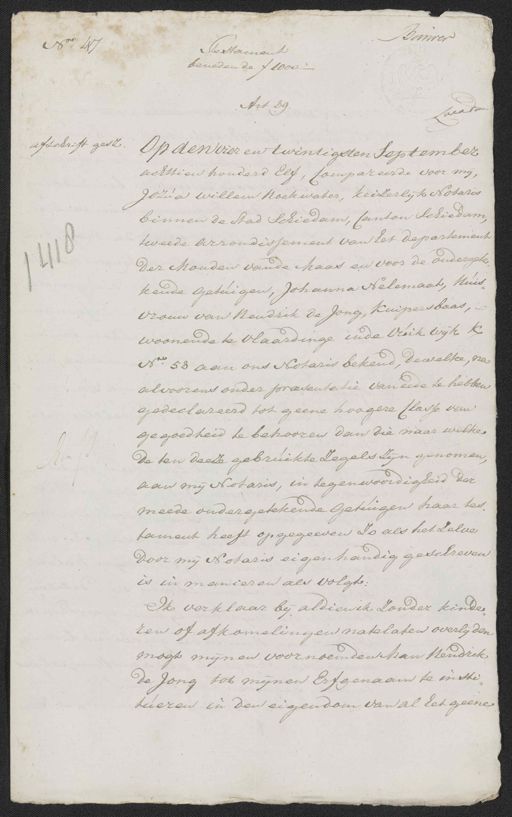 Nro 47
Testament
beneden de f 1000:-
Art 29
afschrift gesz.
1418
Op den vier en twintigsten September
achttien honderd Elf, Compareerde voor my,
Jozua Willem Hoekwater, keizerlyk Notaris
binnen de Stad Schiedam, Canton Schiedam,
tweede arrondissement van het departement
der Monden van de Maas en voor de ondergete
kende getuigen, Johanna Helemaat, Huis
vrouw van Hendrik de Jong, Kuipersbaas,
woonende te Vlaardinge in de Wyk K
Nro 58 aan ons Notaris bekend, dewelke, na
alvoorens onder praesentatie van eede te hebben
gedeclareerd tot geene hoogere Classe van
gegoedheid te behooren dan die naar welke
de ten deeze gebruikte Zegels zyn genomen,
aan my Notaris, in tegenwoordigheid der
meede ondergetekende getuigen haar tes
tament heeft opgegeeven zo als het zelve
door my Notaris eigenhandig geschreven
is in manieren als volgt:
Ik verklaar by aldien ik zonder kinde
ren of afkomelingen natelaten overlyden
mogt mynen voornoemden Man Hendrik
de Jong tot mynen Erfgenaam te insti
tueeren in den eigendom van al het geene